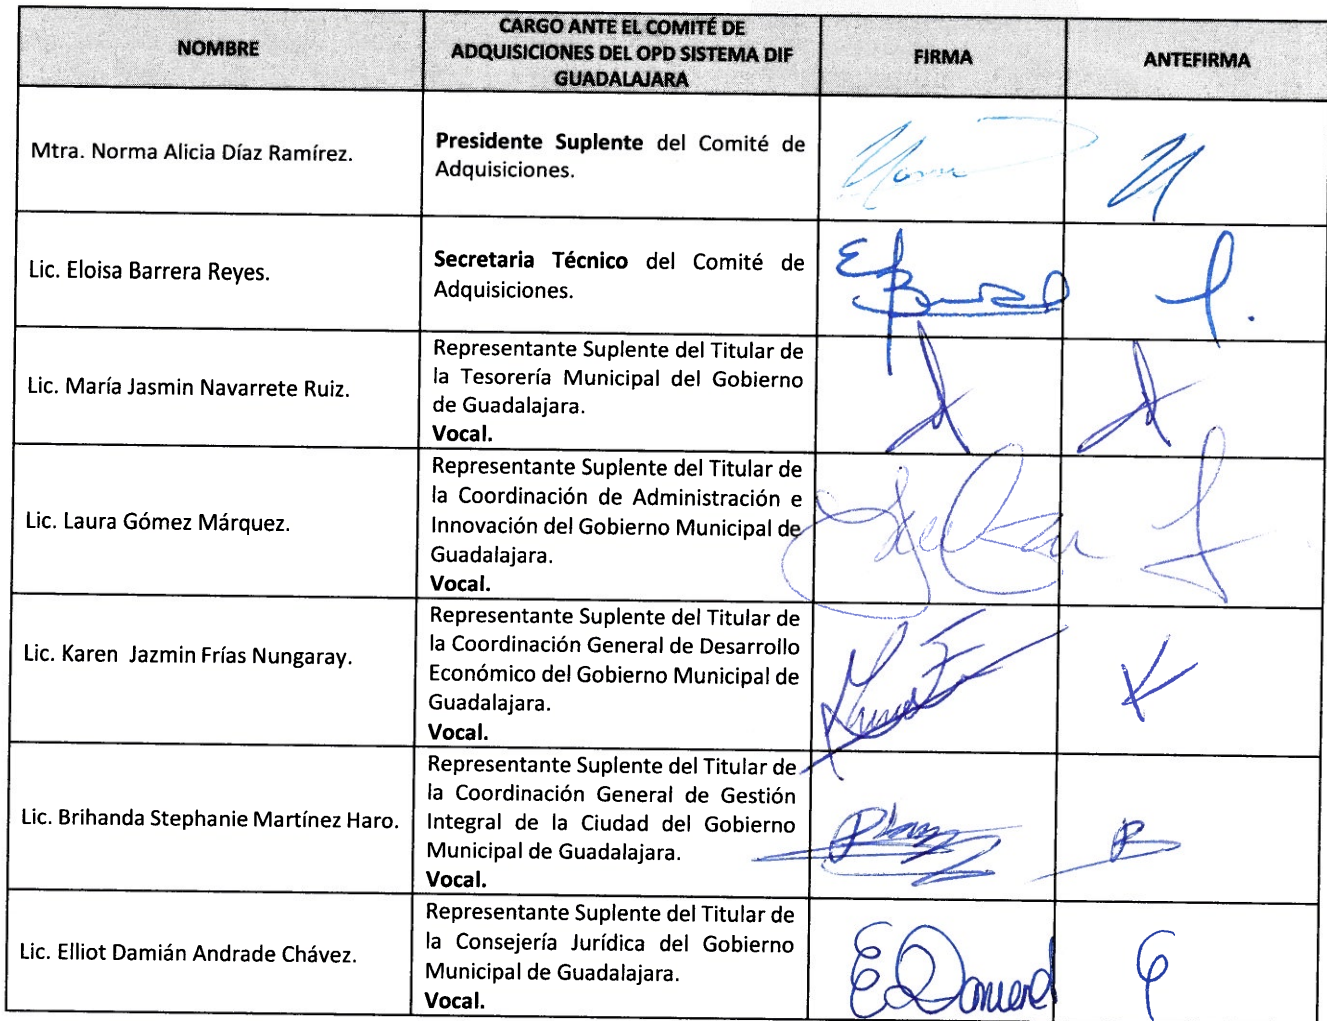 NOMBRE
CARGO ANTE EL COMITÉ DE
ADQUISICIONES DEL OPD SISTEMA DIF
GUADALAJARA
FIRMA
ANTEFIRMA
Mtra. Norma Alicia Díaz Ramírez.
Presidente Suplente del Comité de
Adquisiciones.
Lic. Eloisa Barrera Reyes.
Secretaria Técnico del Comité de
Adquisiciones.
Lic. María Jasmin Navarrete Ruiz.
Representante Suplente del Titular de
la Tesorería Municipal del Gobierno
de Guadalajara.
Vocal.
Lic. Laura Gómez Márquez.
Representante Suplente del Titular de
la Coordinación de Administración e
Innovación del Gobierno Municipal de
Guadalajara.
Vocal.
Lic. Karen Jazmin Frías Nungaray.
Representante Suplente del Titular de
la Coordinación General de Desarrollo
Económico del Gobierno Municipal de
Guadalajara.
Vocal.
Lic. Brihanda Stephanie Martínez Haro.
Representante Suplente del Titular de
la Coordinación General de Gestión
Integral de la Ciudad del Gobierno
Municipal de Guadalajara.
Vocal.
Lic. Elliot Damián Andrade Chávez.
Representante Suplente del Titular de
la Consejería Jurídica del Gobierno
Municipal de Guadalajara.
Vocal.